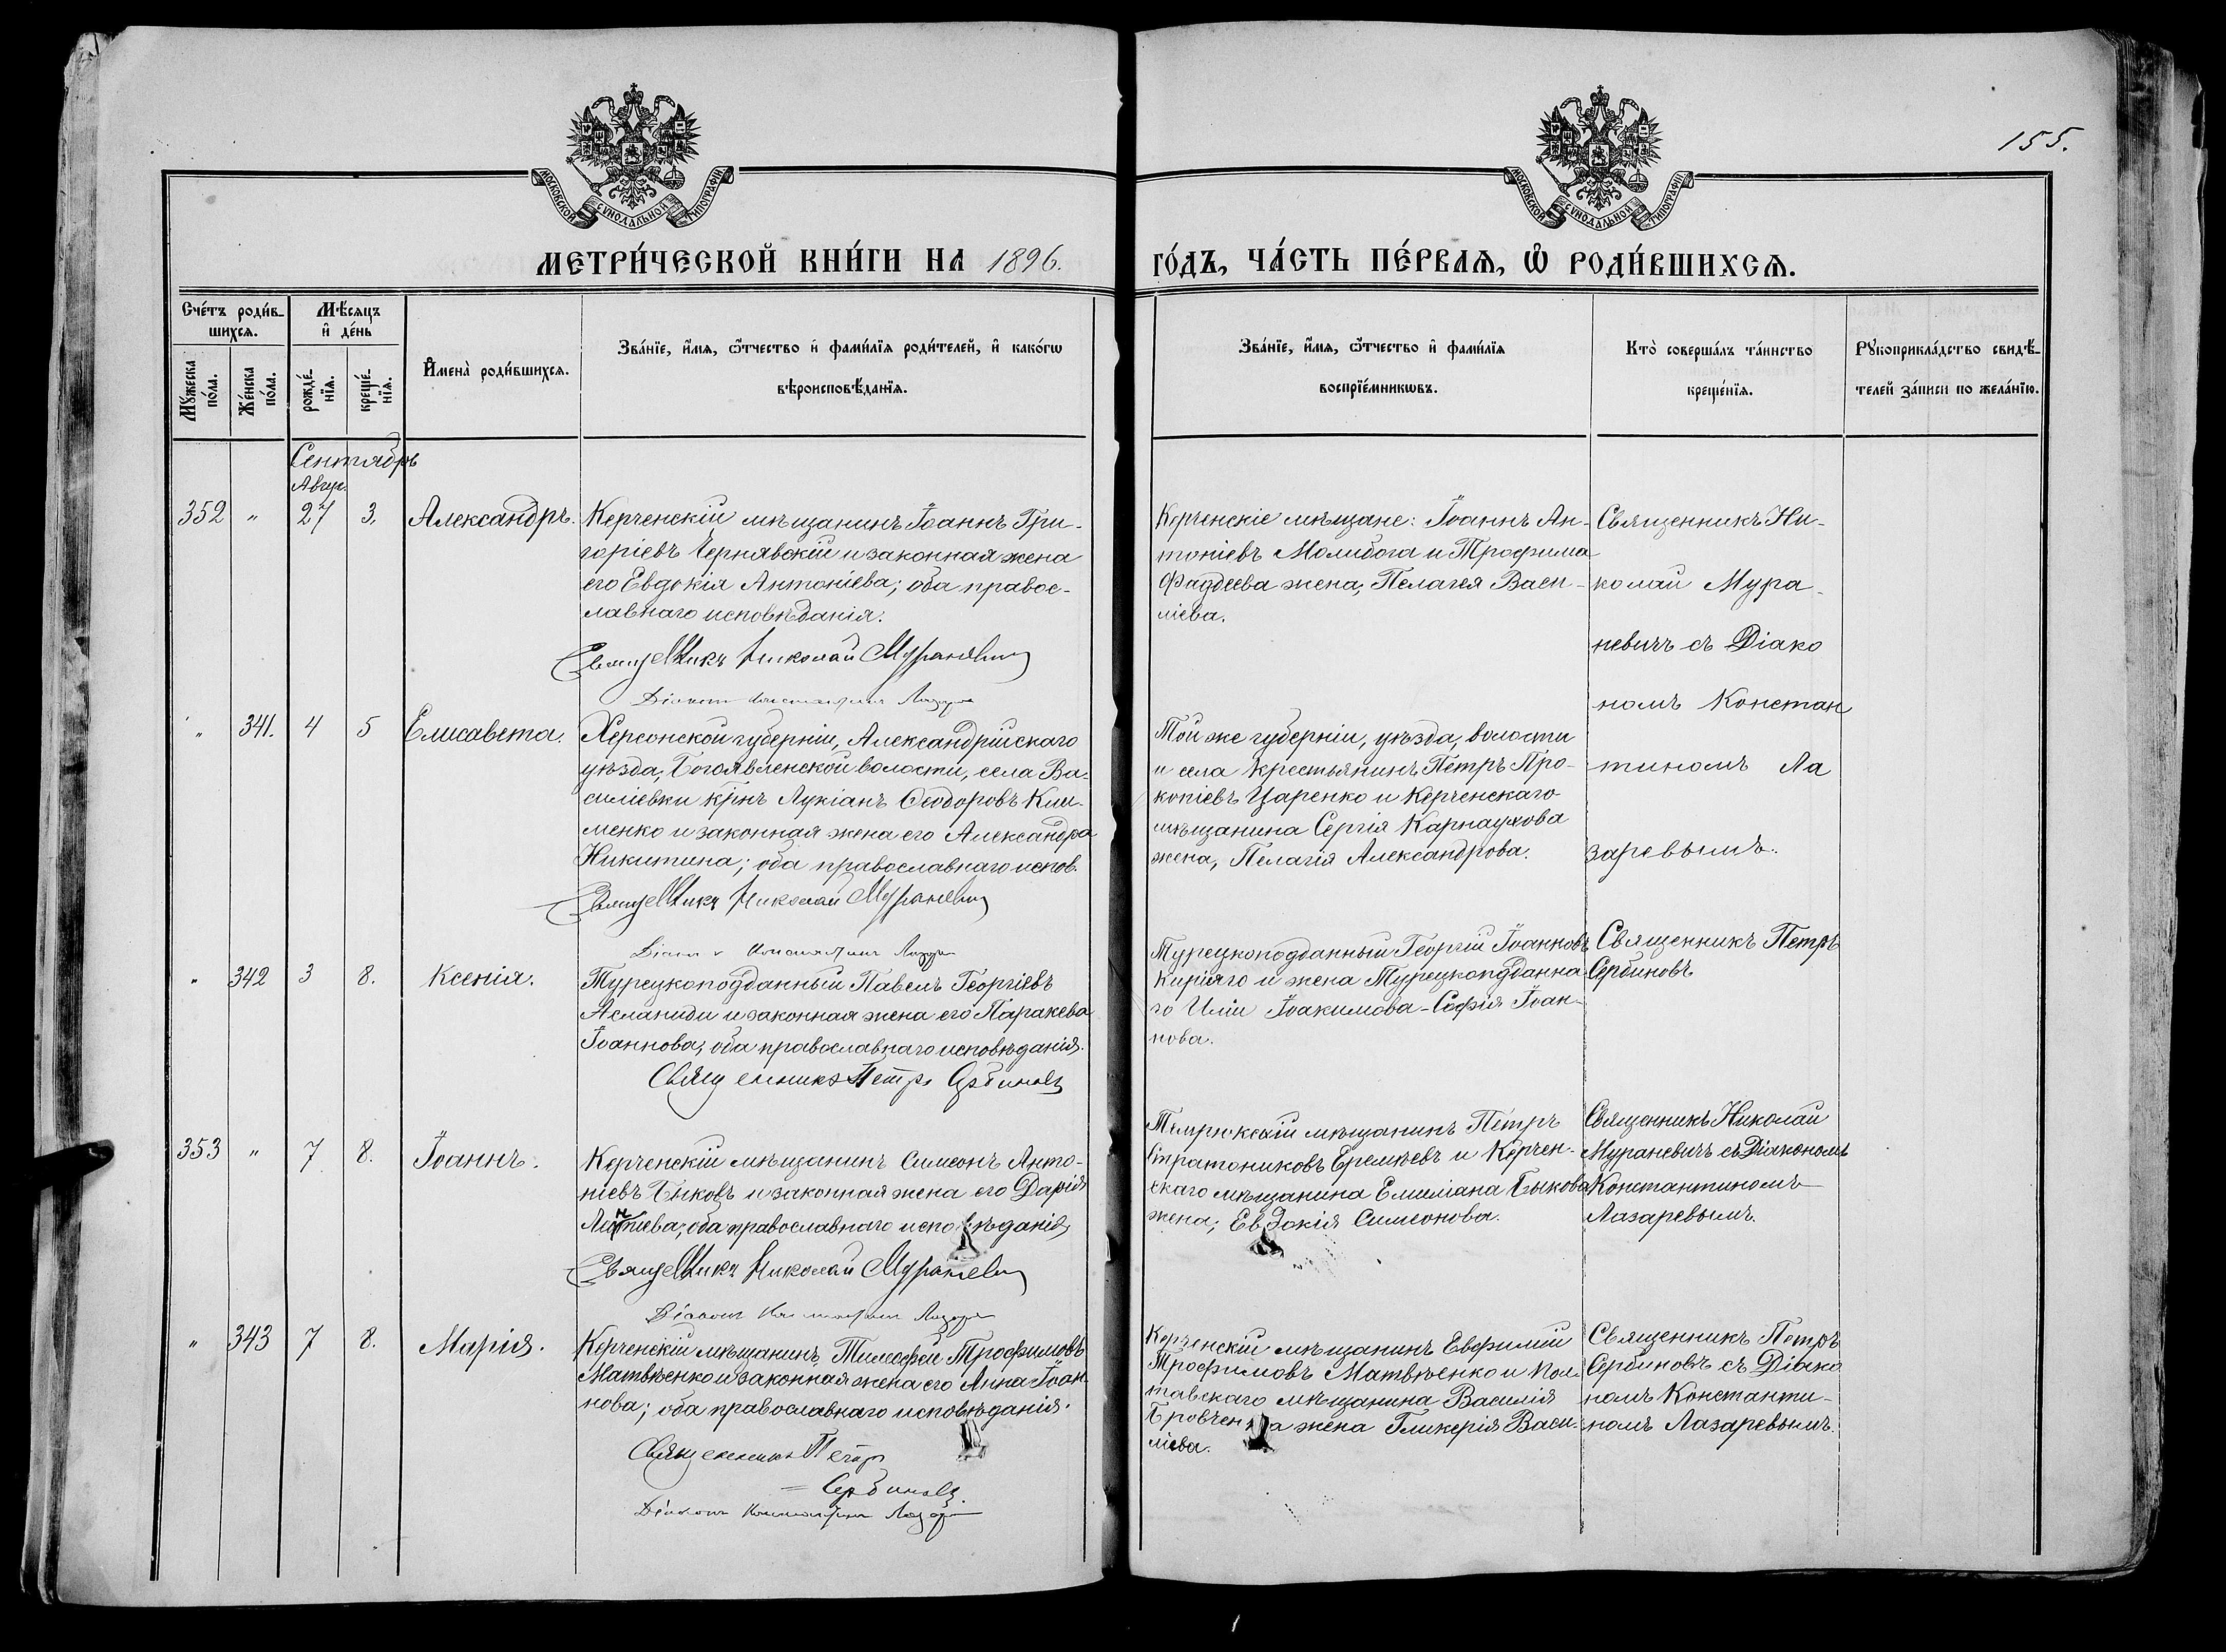 155.
МОСКОВСКОЙ СѴНОДАЛЬНОЙ ТИПОГРАФІИ
МОСКОВСКОЙ СѴНОДАЛЬНОЙ ТИПОГРАФІИ
МЕТРИ́ЧЕСКОЙ КНИ́ГИ НА 1896.
ГО́ДЪ, ЧА́СТЬ ПЕ́РВАѦ, Ѿ РОДИ́ВШИХСѦ.
Сче́тъ роди́в-
шихсѧ.
Мꙋ́жеска
по́ла.
Же́нска
по́ла.
Мѣ́сѧцъ
и҆ де́нь
рожде́-
нїѧ.
креще́-
нїѧ.
И҆мена̀ роди́вшихсѧ.
Зва́нїе, и҆́мѧ, ѻ҆́тчество и҆ фами́лїѧ роди́телей, и҆ како́гѡ
вѣроисповѣ́данїѧ.
Зва́нїе, и҆́мѧ, ѻ҆́тчество и҆ фами́лїѧ
воспрїе́мникѡвъ.
Кто̀ соверша́лъ та́инство
креще́нїѧ.
Рꙋкоприкла́дство свидѣ́-
телей за́писи по жела́нїю.
Сентябрь
Авгус.
352 " 27 3. Александръ.
Керченскій мѣщанинъ Іоаннъ Гри-
горіевъ Чернявскій и законная жена
его Евдокія Антоніева; оба правос-
лавнаго исповѣданія.
Священникъ Николай Мураневичъ
Діаконъ Константинъ Лазаревъ
Керченскіе мѣщане: Іоаннъ Ан-
тоніевъ Молибога и Трофима
Фаддеева жена, Пелагея Васи-
ліева.
Священникъ Ни-
колай Мура-
невичъ съ Діако
номъ Констан
тиномъ Ла
заревымъ.
" 341. 4 5 Елисавета.
Херсонской губерніи, Александрійскаго
уѣзда, Богоявленской волости, села Ва-
силіевки крнъ Лукіанъ Ѳеодоровъ Кли-
менко и законная жена его Александра
Никитина; оба православнаго испов.
Священникъ Николай Мураневичъ
Діаконъ Константинъ Лазаревъ
Той же губерніи, уѣзда, волости
и села крестьянинъ Петръ Про-
копіевъ Царенко и Керченскаго
мѣщанина Сергія Карнаухова
жена, Пелагія Александрова.
" 342 3 8. Ксенія.
Турецкоподданный Павелъ Георгіевъ
Асланиди и законная жена его Паракева
Іоаннова; оба православнаго исповѣданія.
Священникъ Петръ Сербиновъ
Турецкоподданный Георгій Іоанновъ
Киріяго и жена Турецкоподданна-
го Иліи Іоакимова-Софія Іоан-
нова.
Священникъ Петръ
Сербиновъ
353 " 7 8. Іоаннъ.
Керченскій мѣщанинъ Симеонъ Анто-
ніевъ Быковъ и законная жена его Дарія
оба православнаго исповѣданія,
Священникъ Николай Мураневичъ
Діаконъ Константинъ Лазаревъ
Темрюкскій мѣщанинъ Петръ
Стратониковъ Еремѣевъ и Керчен-
скаго мѣщанина Емиліана Быкова
жена; Евдокія Симеонова.
Священникъ Николай
Мураневичъ съ Діакономъ
Константиномъ
Лазаревымъ.
" 343 7 8. Марія.
Керченскій мѣщанинъ, Тимофей Трофимовъ
Матвѣенко и законная жена его Анна Іоан-
нова; оба православнаго исповѣданія.
Священникъ Петръ
Сербиновъ.
Діаконъ Константинъ Лазаревъ
Керченскій мѣщанинъ Евфимій
Трофимовъ Матвѣенко и Пол-
тавскаго мѣщанина Василія
Бровченка жена Гликерія Васи-
ліева.
Священникъ Петръ
Сербиновъ съ Діако
номъ Константи-
номъ Лазаревымъ.